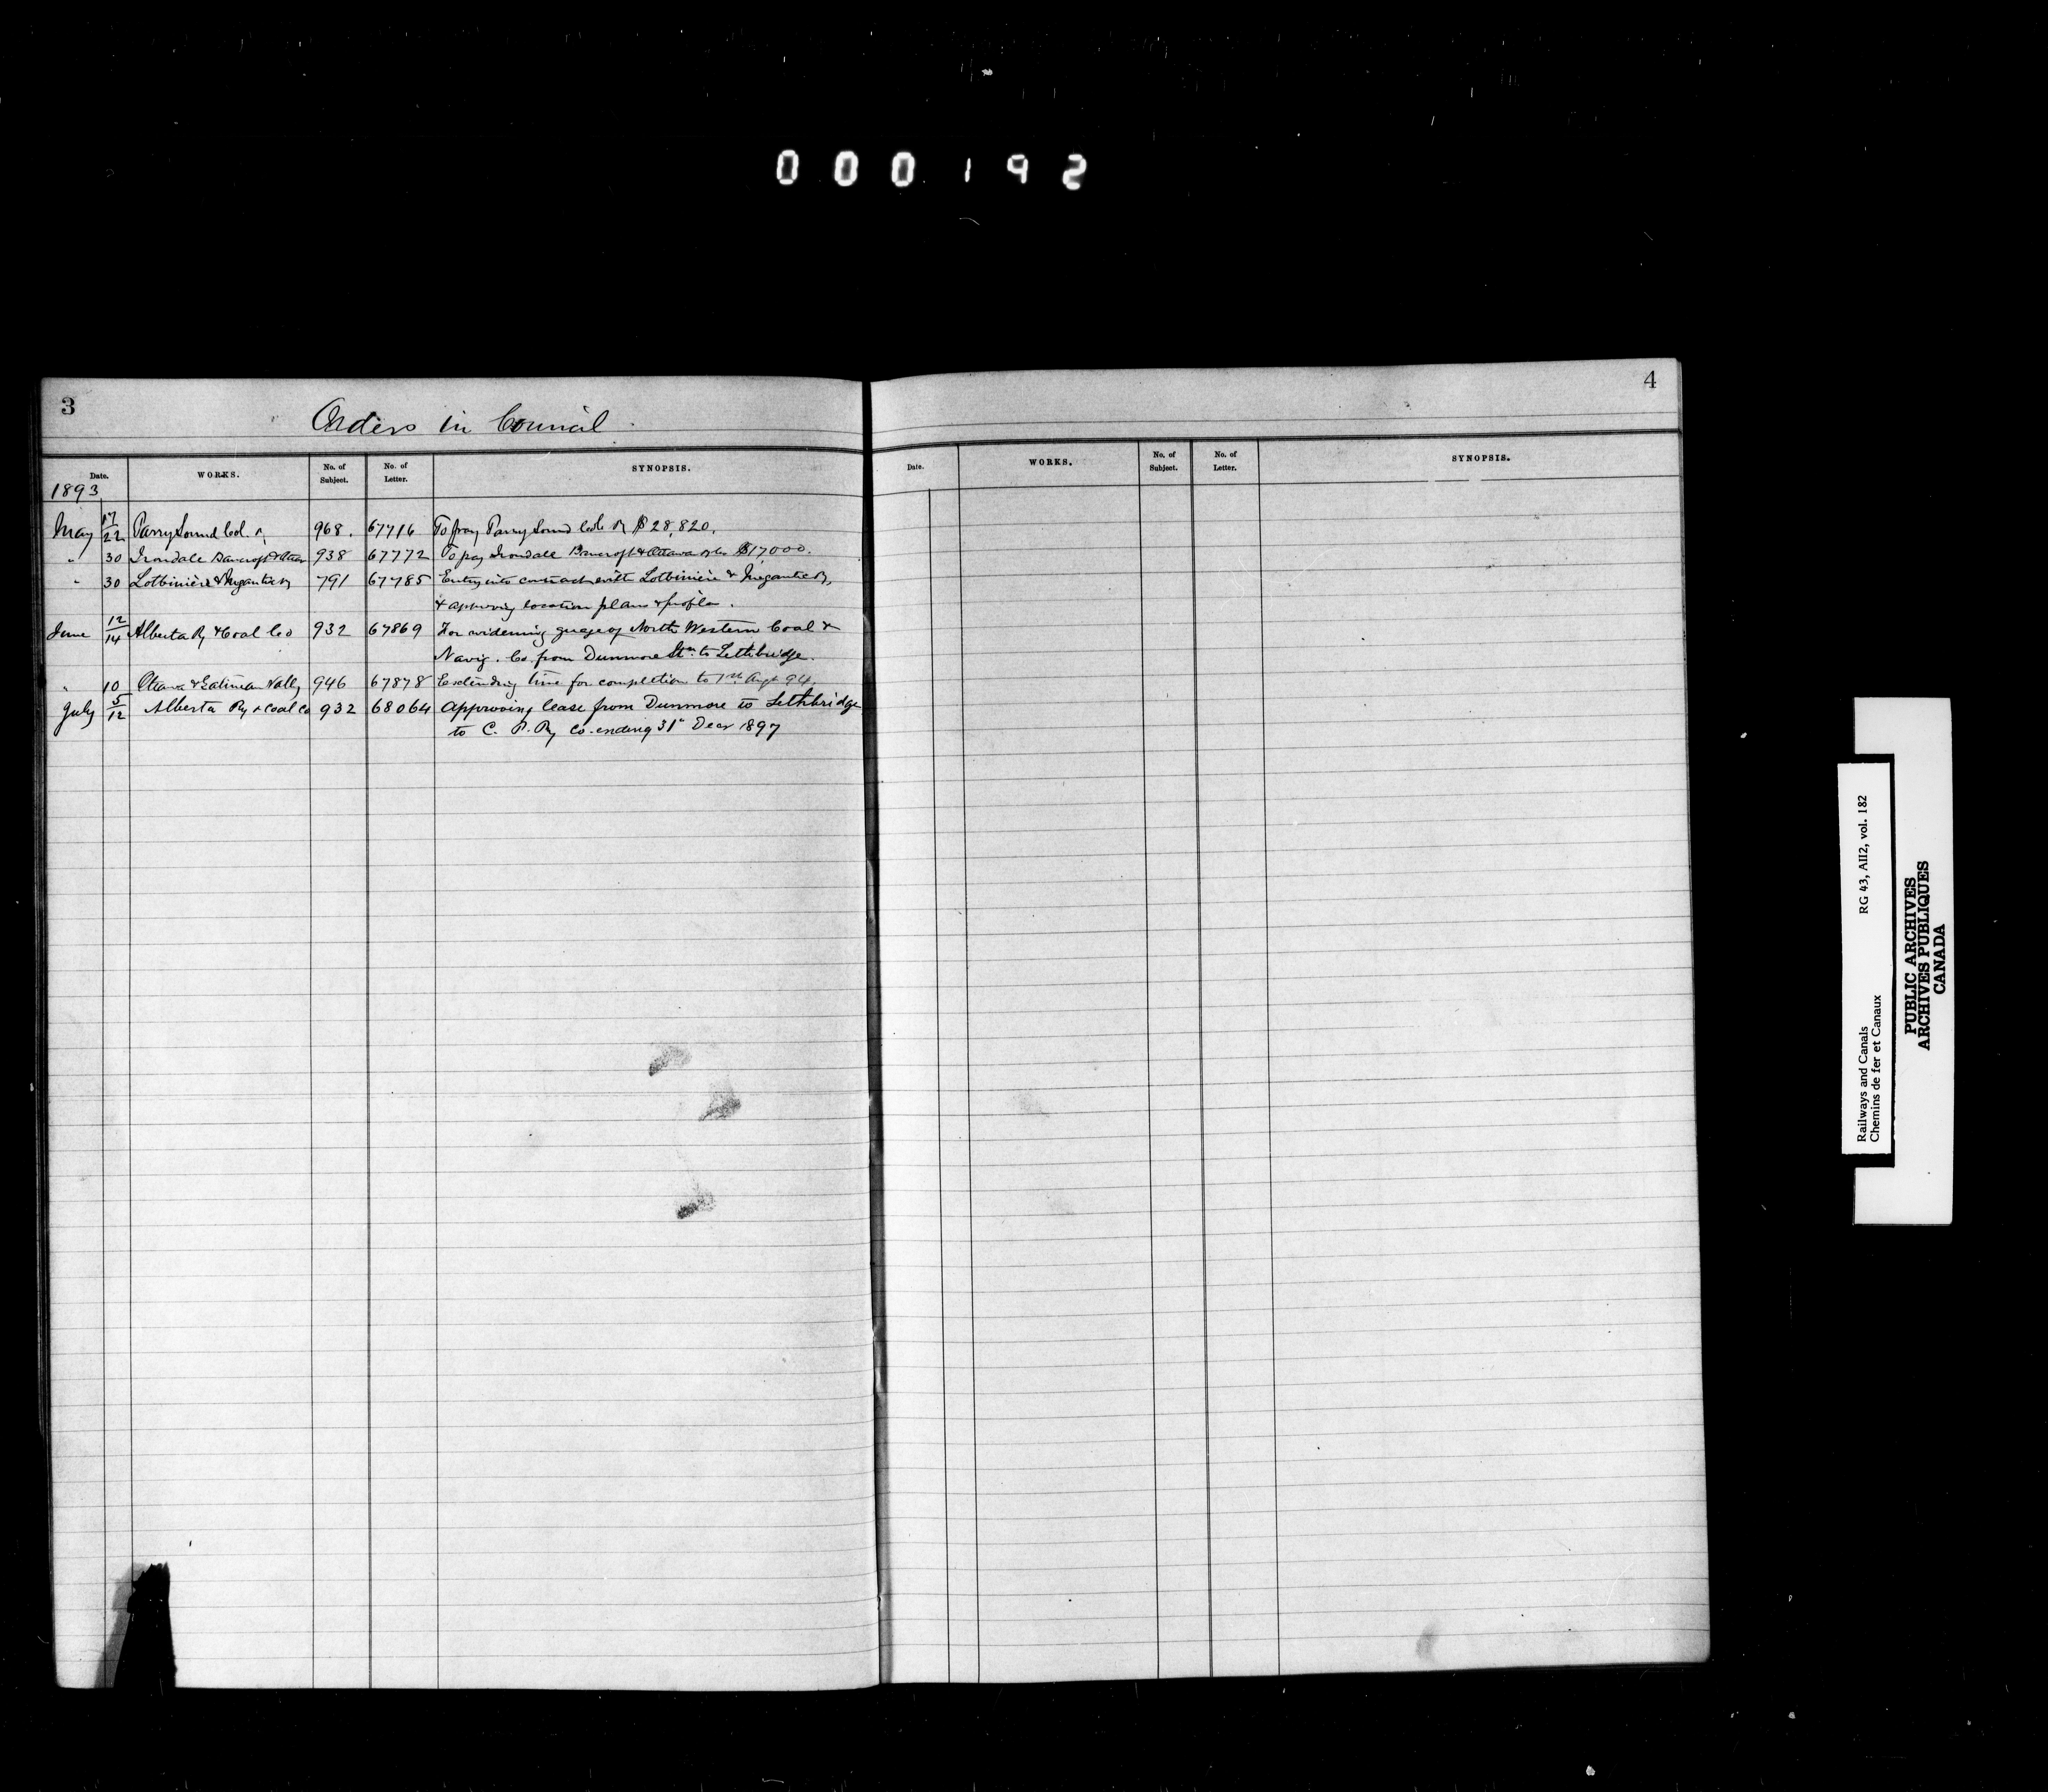 000192
3
Orders in Council
Date. WORKS. No. of Subject. No. of Letter. SYNOPSIS.
1893
May 17/22 Parry Sound Col. Ry 968. 67716 To pay Parry Sound Col. Ry $28,820.
" 30 Irondale Bancroft & Ottawa 938 67772 To pay Irondale Bancroft & Ottawa Ry Co $17,000.
" 30 Lotbinière & Megantic Ry 791 67785 Entry into contract with Lotbinière & Megantic Ry,
& approving location plans & profiles.
June 12/14 Alberta Ry & Coal Co 932 67869 For widening guage of North Western Coal &
Navig. Co. from Dunmore Stn. to Lethbridge.
" 10 Ottawa & Gatineau Valley 946 67878 Extending time for completion to 1st Augt 94.
July 5/12 Alberta Ry & Coal Co 932 68064 Approving lease from Dunmore to Lethbridge
to C. P. Ry Co. ending 31st Decr 1897
4
Date. WORKS. No. of Subject. No. of Letter. SYNOPSIS.
Railways and Canals RG 43, AII2, vol. 182
Chemins de fer et Canaux
PUBLIC ARCHIVES
ARCHIVES PUBLIQUES
CANADA